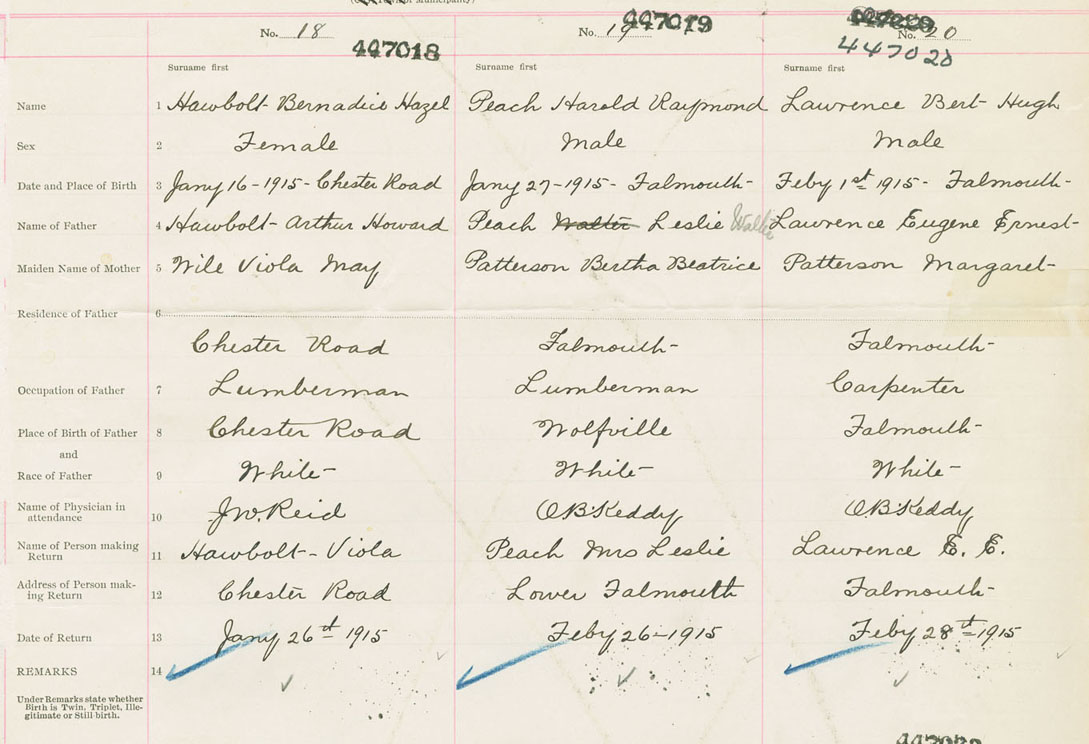 or Municipality)
No. 18 No. 19 No. 20
447018 447019 447020
Surname first Surname first Surname first
Name 1 Hawbolt- Bernadice Hazel Peach Harold Raymond Lawrence Bert- Hugh
Sex 2 Female Male Male
Date and Place of Birth 3 Jany 16-1915- Chester Road Jany 27-1915- Falmouth- Feby 1st 1915- Falmouth-
Name of Father 4 Hawbolt- Arthur Howard Peach Walter Leslie Walter Lawrence Eugene Ernest-
Maiden Name of Mother 5 Wile Viola May Patterson Bertha Beatrice Patterson Margaret-
Residence of Father 6
Chester Road Falmouth- Falmouth-
Occupation of Father 7 Lumberman Lumberman Carpenter
Place of Birth of Father 8 Chester Road Wolfville Falmouth-
and
Race of Father 9 White- White- White-
Name of Physician in
attendance 10 J.W. Reid O B Keddy O B Keddy
Name of Person making
Return 11 Hawbolt- Viola Peach Mrs Leslie Lawrence E. E.
Address of Person mak-
ing Return 12 Chester Road Lower Falmouth Falmouth-
Date of Return 13 Jany 26st 1915 Feby 26-1915 Feby 28st-1915
REMARKS 14
Under Remarks state whether
Birth is Twin, Triplet, Ille-
gitimate or Still-birth.